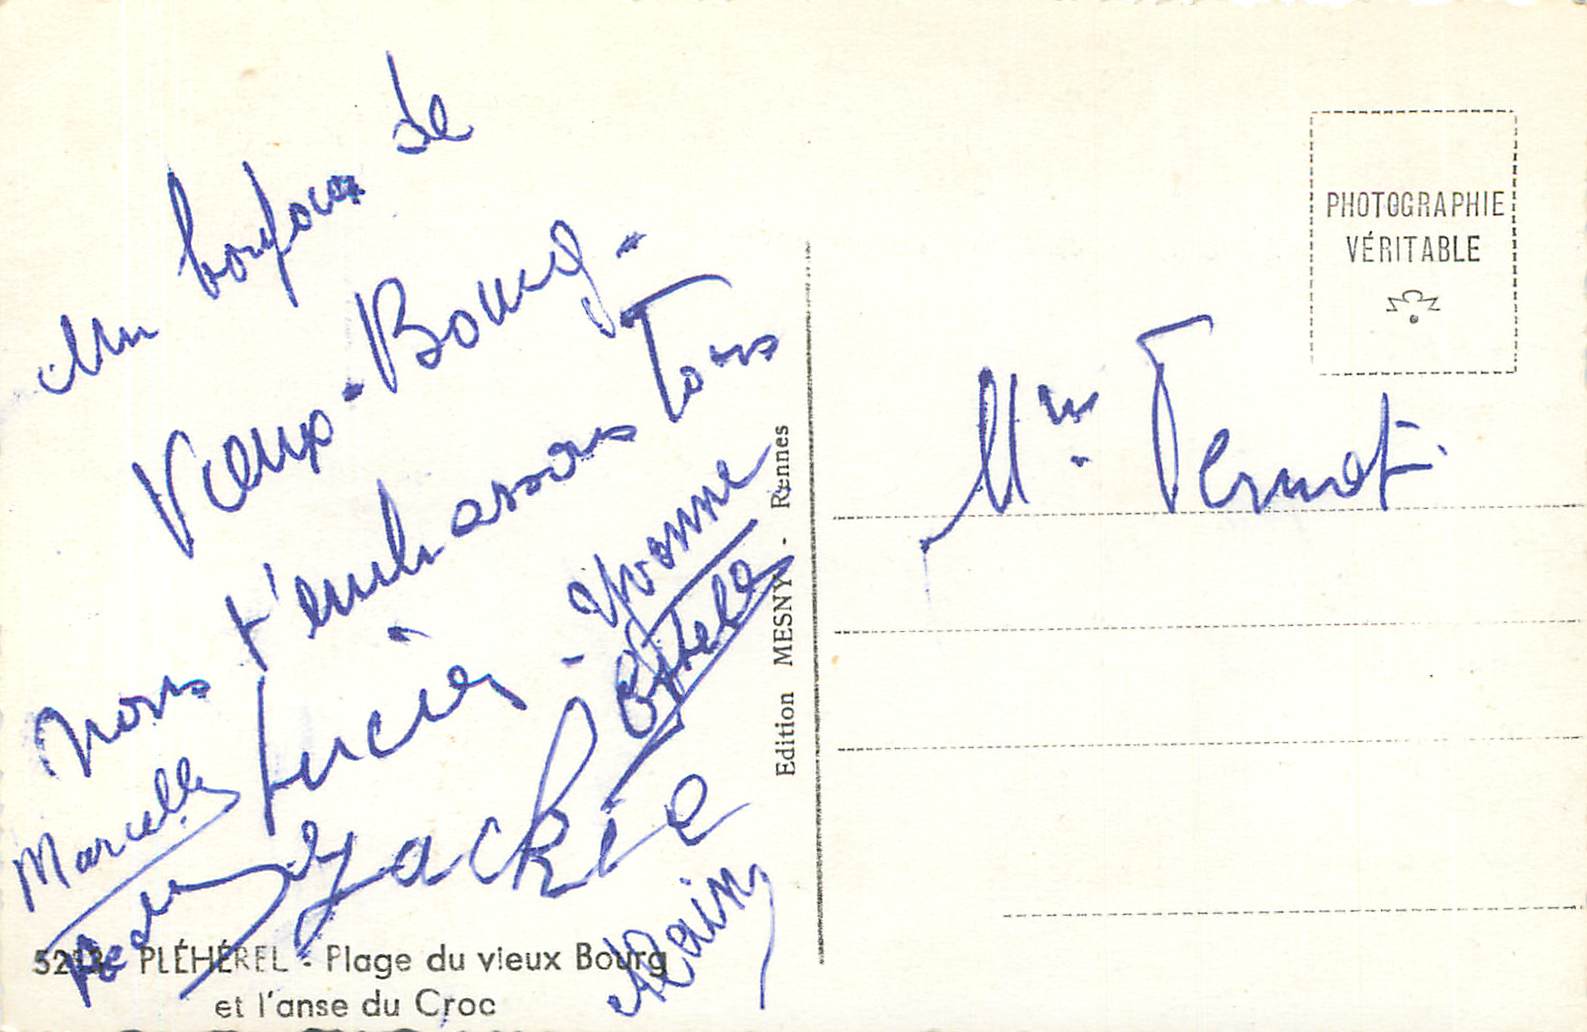 Un bonjour de
Vieux-Bourg -
Nous t'embrassons Tous
Lucie - Yvonne
Marcelle
Jackie
Alain
5213 - PLÉHÉREL - Plage du vieux Bourg
et l'anse du Croc
Edition MESNY - Rennes
PHOTOGRAPHIE
VÉRITABLE
Mme